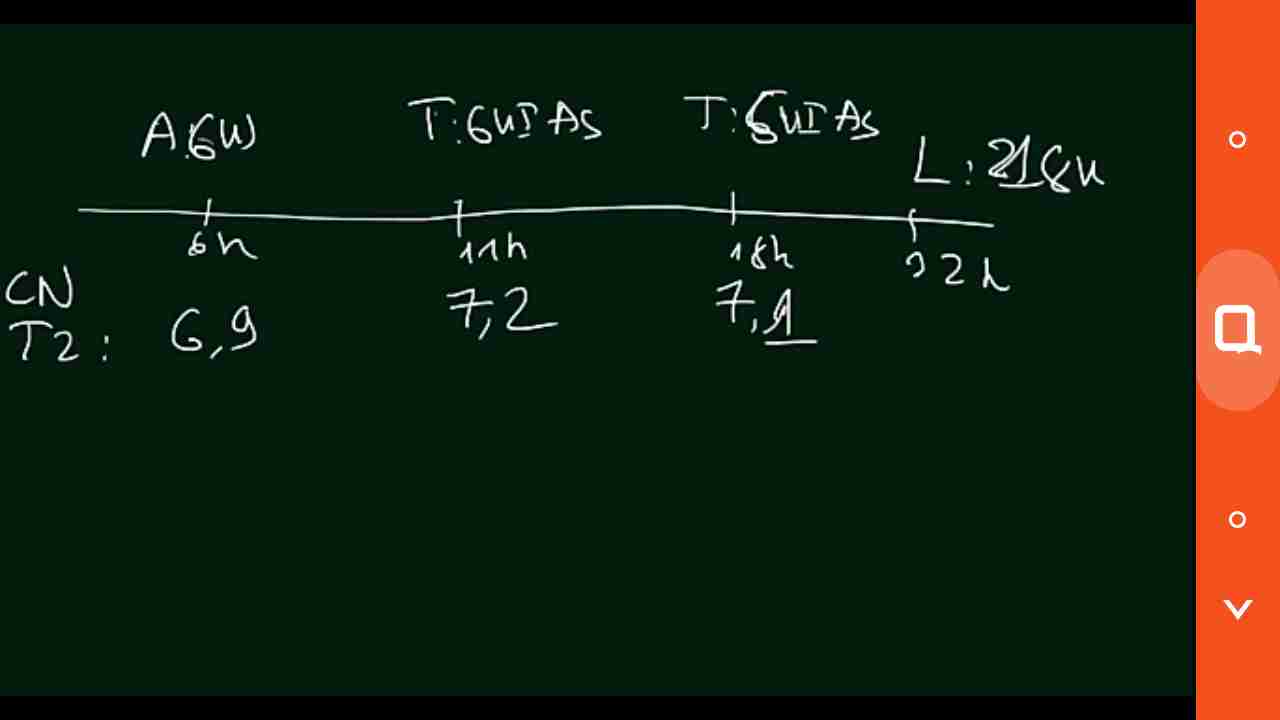 A:6UI T:6UI As T:6UI As L:218u
6h 11h 18h 22h
CN
T2: 6,9 7,2 7,1